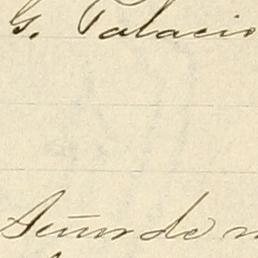 G. Palacio
Señor de